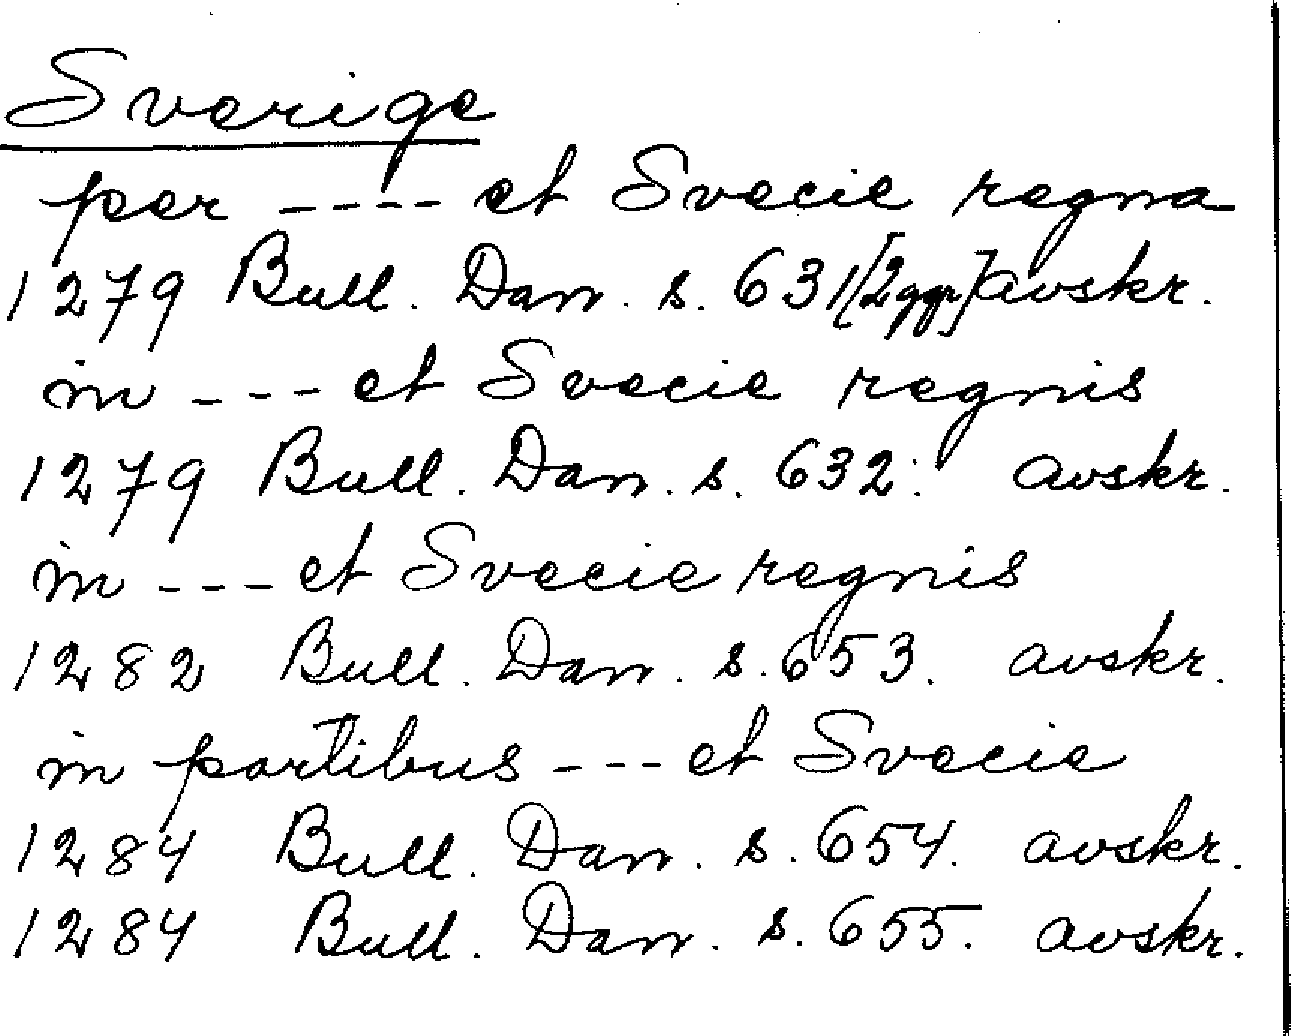 Sverige
per ---- et Svecie regna
1279 Bull. Dan. s. 631 [2 ggr] avskr.
in --- et Svecie regnis
1279 Bull. Dan. s. 632. avskr.
in --- et Svecie regnis
1282 Bull. Dan. s. 653. avskr.
in partibus --- et Svecie
1284 Bull. Dan. s. 654. avskr.
1284 Bull. Dan. s. 655. avskr.